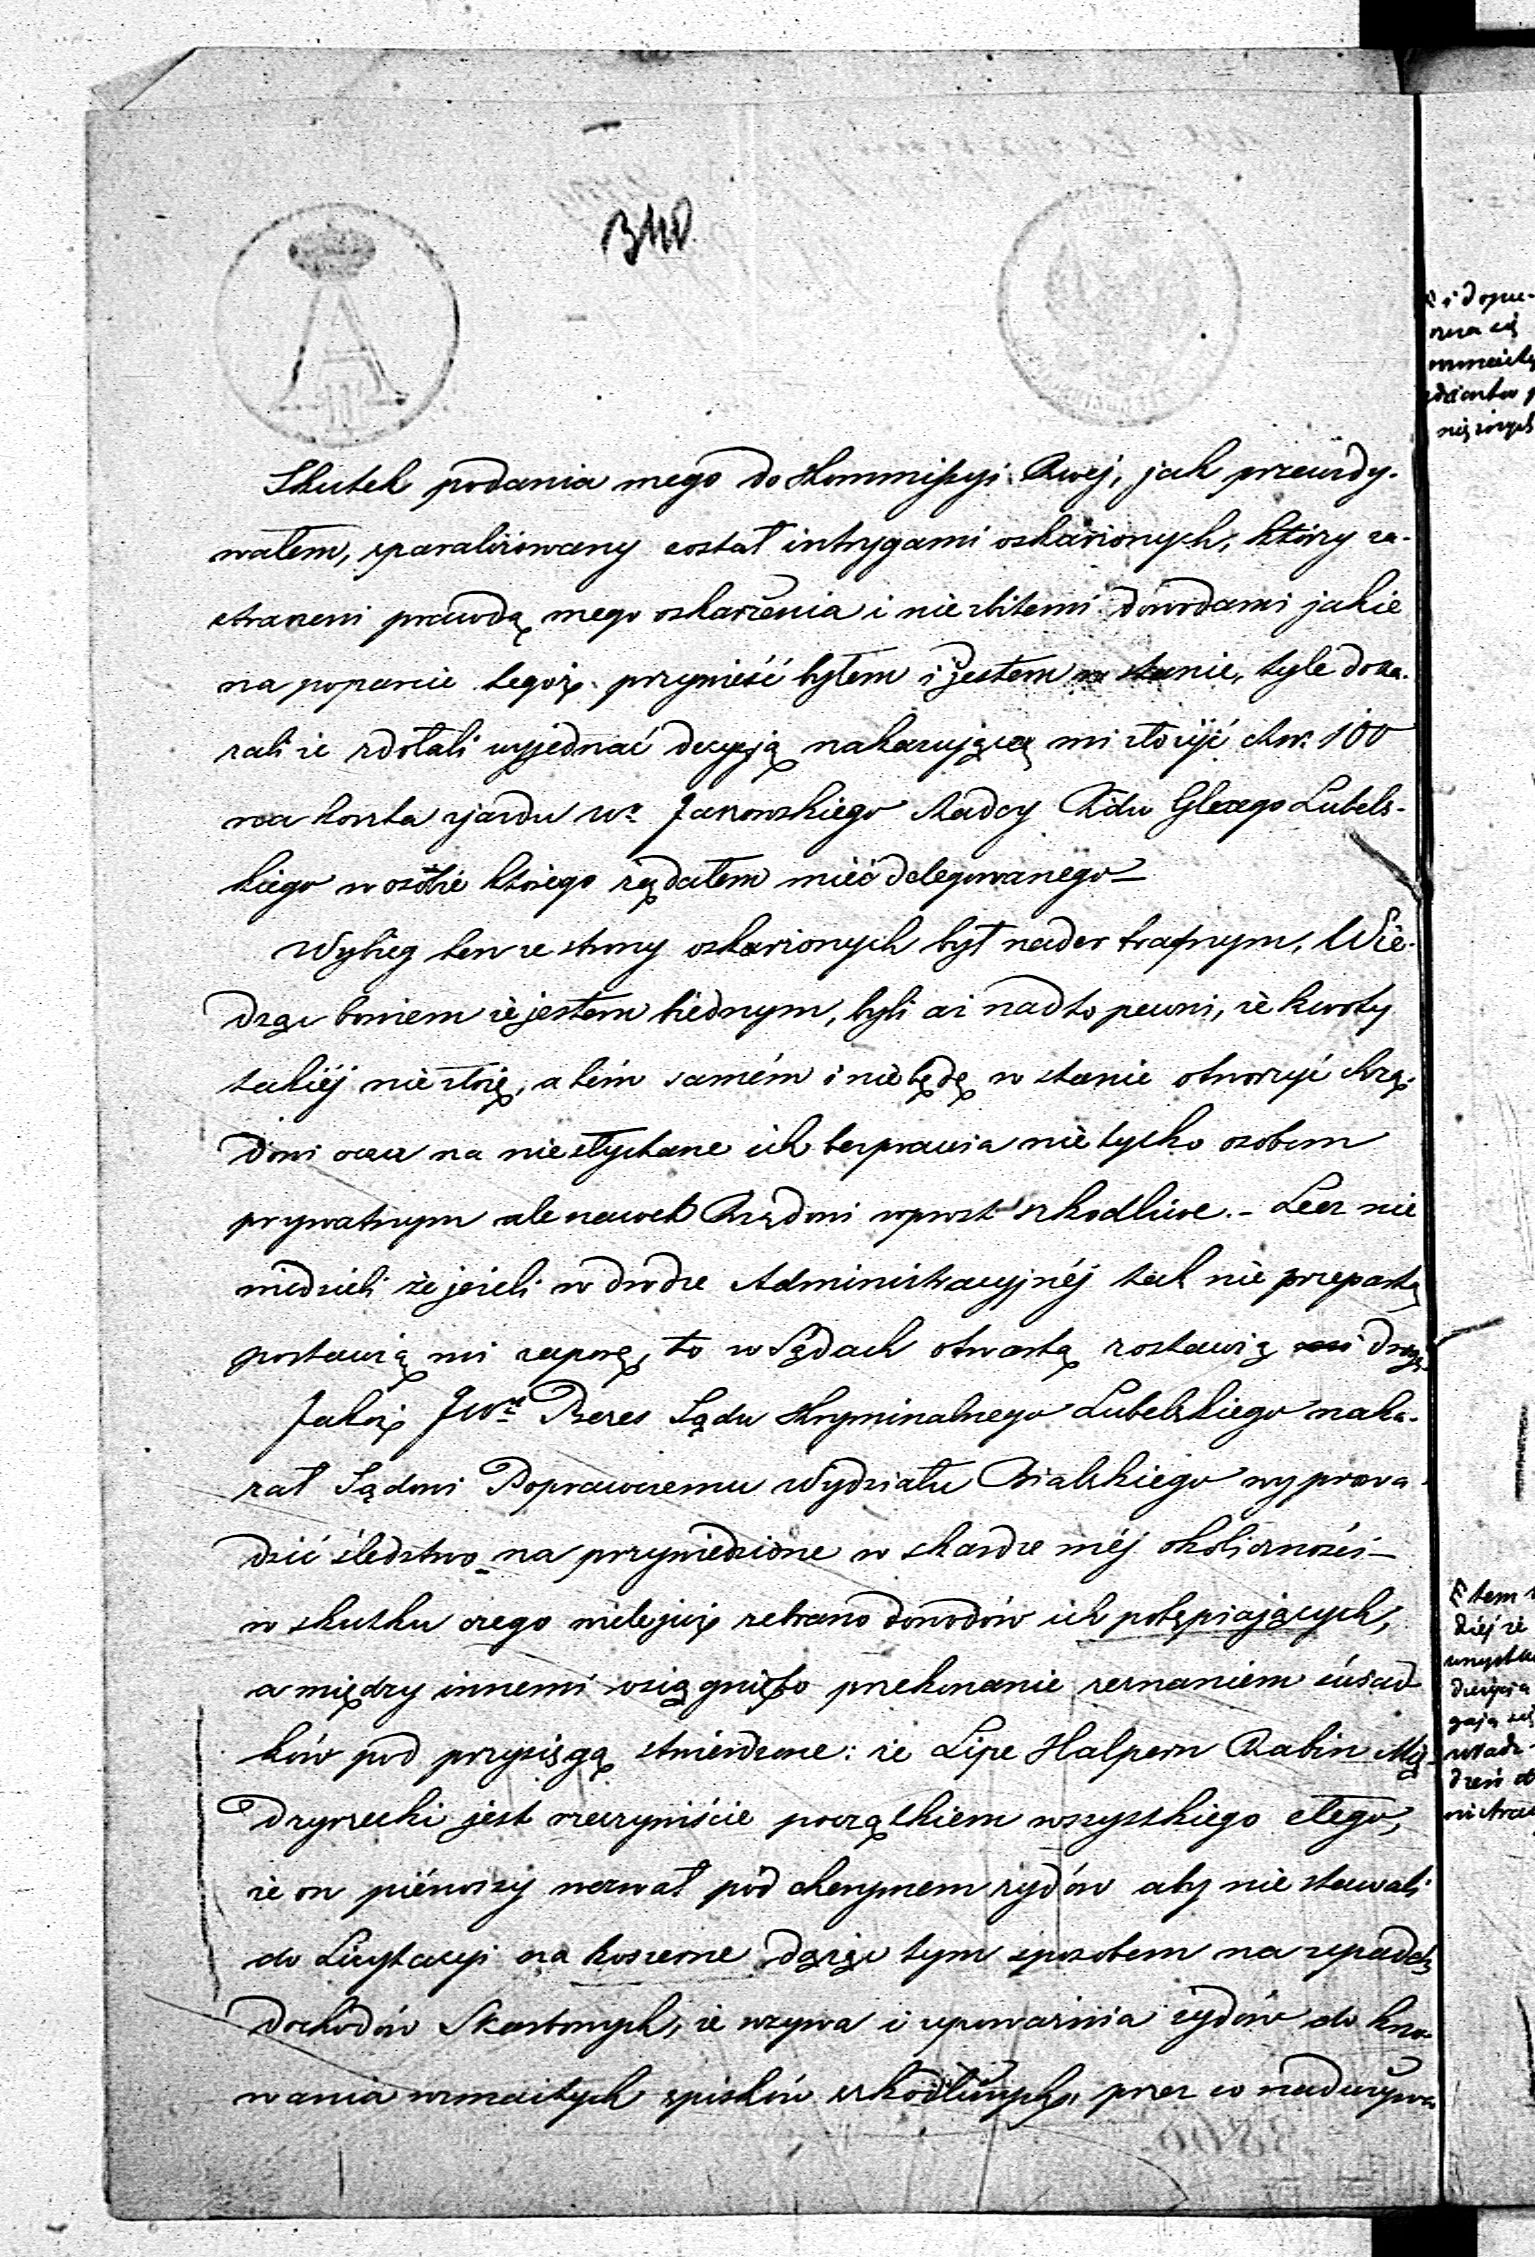 340.
A II
Skutek podania mego do Kommissyi Rwej, jak przewidy-
wałem, sparaliżowany został intrygami oskarżonych, którzy za-
straszeni prawdą mego oskarżenia i niezbitemi dowodami jakie
na poparcie tegoż przynieść byłem i jestem w stanie, tyle doka-
zali że zdołali wyjednać decyzją nakazującą mi złożyć rbr. 100
na koszta zjazdu Wo Janowskiego Radcy Rządu Glnego Lubels-
kiego w osobie którego żądałem mieć delegowanego –
Wybieg ten ze strony oskarżonych był nader trafnym, Wie-
dząc bowiem że jestem biednym, byli aż nadto pewni, że kwoty
takiéj nie złożę, a tém samém i nie będę w stanie otworzyć Rzą-
dowi oczu na niesłychane ich bezprawia nie tylko osobom
prywatnym ale nawet Rządowi wprost szkodliwe. – Lecz nie
wiedzieli że jeżeli w drodze Administracyjnéj tak nie przepartą
postawią mi zaporę, to w Sądach otwartą zostawią mi drogę
Jakoż JWny Prezes Sądu Kryminalnego Lubelskiego naka-
zał Sądowi Poprawczemu Wydziału Bialskiego wyprowa-
dzić śledztwo na przywiedzione w skardze méj okoliczności –
w skutku czego wielejuż zebrano dowodów ich potępiających,
a między innemi osiągnięto przekonanie zeznaniem świad-
ków pod przysięgą stwierdzone: że Lipe Halpern Rabin Mię-
dzyrzecki jest rzeczywiście początkiem wszystkiego złego,
że on piérwszy wezwał pod cherymem żydów aby nie stawali
do Licytacyi na koszerne dążąc tym sposobem na upadek
dochodów Skarbowych, że wzywa i upoważnia żydów do kno-
wania rozmaitych spisków szkodliwych, przez co nadużywa